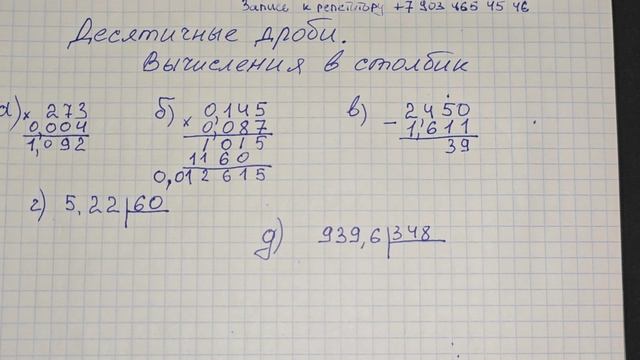 Запись к репетитору +7 903 465 45 46
Десятичные дроби.
Вычисления в столбик
а) × 273
0,004
1,092
б) × 0,145
0,087
1015
1160
0,012615
в) - 2,450
1,611
39
г) 5,22 60
д) 939,6 348